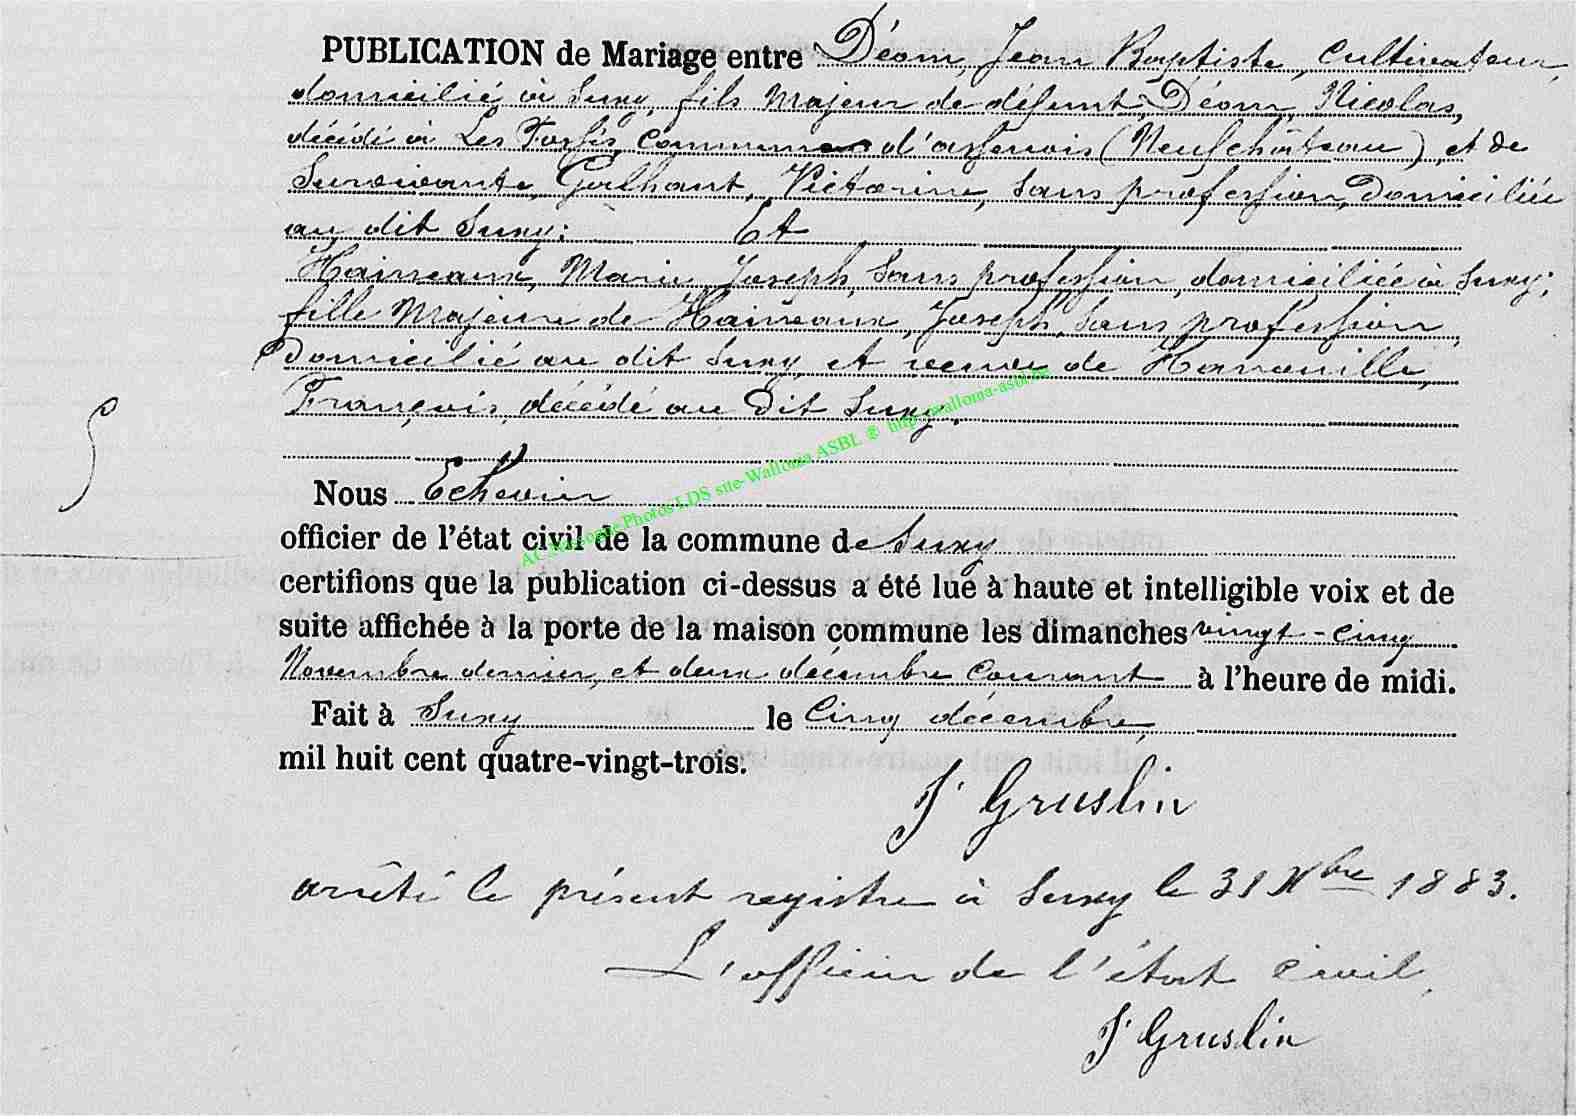 PUBLICATION de Mariage entre Déom, Jean Baptiste, Cultivateur,
domicilié à Suxy, fils Majeur de défunt, Déom, Nicolas,
décédé à Les Fossés, Commune d'assenois (Neufchâteau), et de
Survivante, Galhaut, Victorine, Sans profession, Domiciliée
au dit Suxy; Et
Haineaux, Marie Joseph, Sans profession, domiciliée à Suxy;
fille Majeure de Haineaux, Joseph, Sans profession,
Domicilié au dit Suxy, et veuve de
François, décédé au Dit Suxy.
Nous Echevin
officier de l'état civil de la commune de Suxy
certifions que la publication ci-dessus a été lue à haute et intelligible voix et de
suite affichée à la porte de la maison commune les dimanches vingt-cinq
Novembre dernier, et deux décembre Courant à l'heure de midi.
Fait à Suxy le Cinq décembre,
mil huit cent quatre-vingt-trois.
J Gruslin
arrêté le présent registre à Suxy le 31 Xbre 1883.
L'officier de l'état civil,
J Gruslin
Photos LDS site-Wallonia ASBL ® http://wallonia-asbl.be